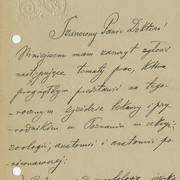 Szanowny Panie Doktorze!
Niniejszem mam zaszczyt zgłosić
następujące tematy prac, które
pragnąłbym przedstawić na tego-
rocznym zjeździe lekarzy i przy-
rodników w Poznaniu w sekcji
zoologji, anatomii i anatomii po-
równawczej: